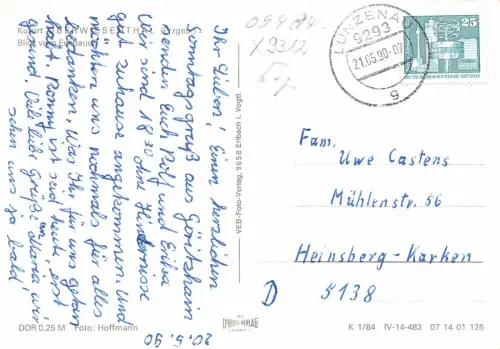 Kurort OBERWIESENTHAL (Erzgeb.)
Blick vom Eckbauer
Ihr Lieben! Einen herzlichen
Sonntagsgruß aus Göritzhain
senden Euch Rolf und Erika
Wir sind 18.30 ohne Hindernisse
gut zuhause angekommen. Und
möchten uns nochmals für alles
bedanken, was Ihr für uns getan
habt. Ronny ist seid heute erst
gesund. Viele liebe Grüße an Maria wir
sehen uns ja bald!
20.5.90
DDR 0,25 M Foto: Hoffmann
VEB-Foto-Verlag, 9658 Erlbach i. Vogtl.
09484
/9312
LUNZENAU
9293
21.05.90-07
g
25
Fam.
Uwe Castens
Mühlenstr. 56
Heinsberg-Karken
D 5138
K 1/84 IV-14-483 07 14 01 126